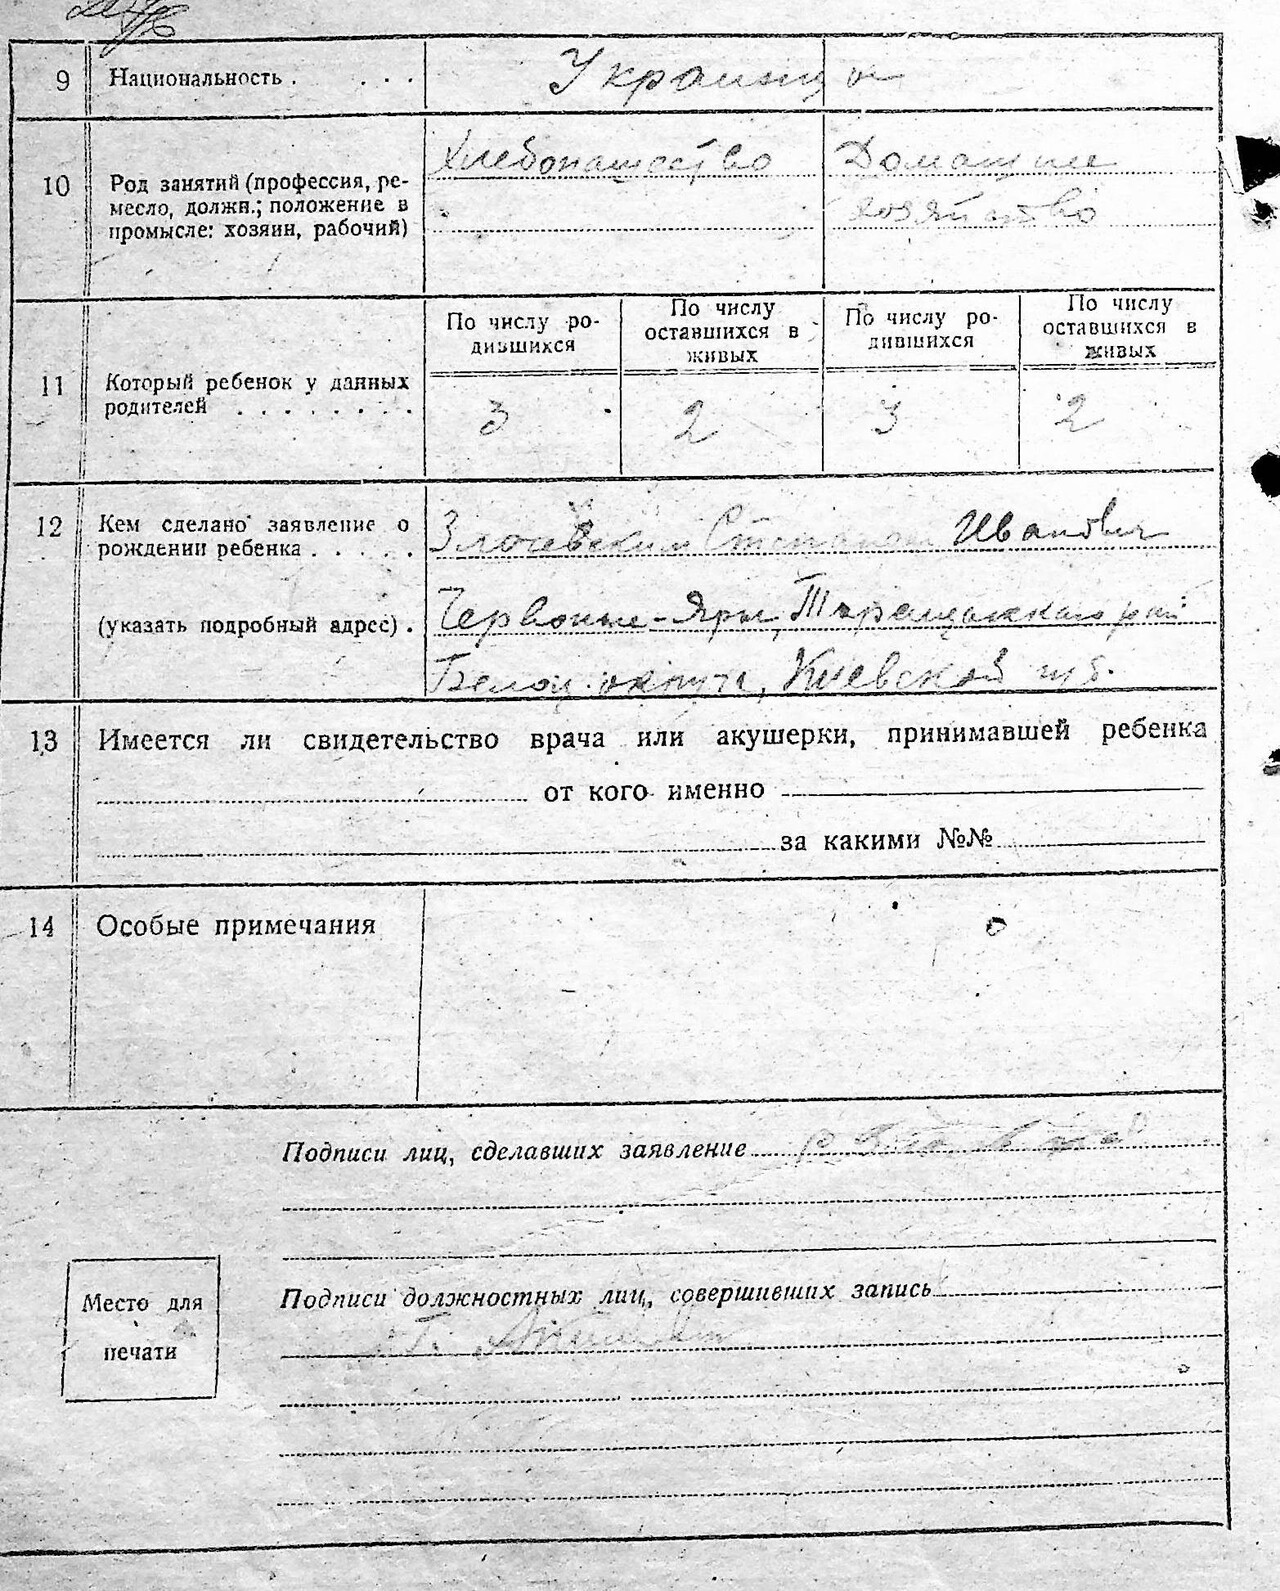 9 Национальность . . . . Украинцы
10 Род занятий (профессия, ре-
месло, должн.; положение в
промысле: хозяин, рабочий)
Хлебопашество
Домашнее
хозяйство
11 Который ребенок у данных
родителей . . . . . . . .
По числу ро-
дившихся
По числу
оставшихся в
живых
По числу ро-
дившихся
По числу
оставшихся в
живых
3 2 3 2
12 Кем сделано заявление о
рождении ребенка . . . . .
Иванович
(указать подробный адрес) .
Червоные-Яры, Таращанского
округа, Киевской губ.
13 Имеется ли свидетельство врача или акушерки, принимавшей ребенка
от кого именно
за какими №№
14 Особые примечания
Подписи лиц, сделавших заявление
Подписи должностных лиц, совершивших запись
Место для
печати